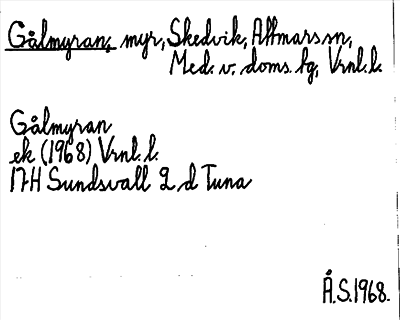 Gålmyran, myr, Skedvik, Attmars sn,
Med. v. doms. hg, Vrnl. l.
Gålmyran
ek (1968) Vrnl. l.
17H Sundsvall 2 d Tuna
Å.S. 1968.